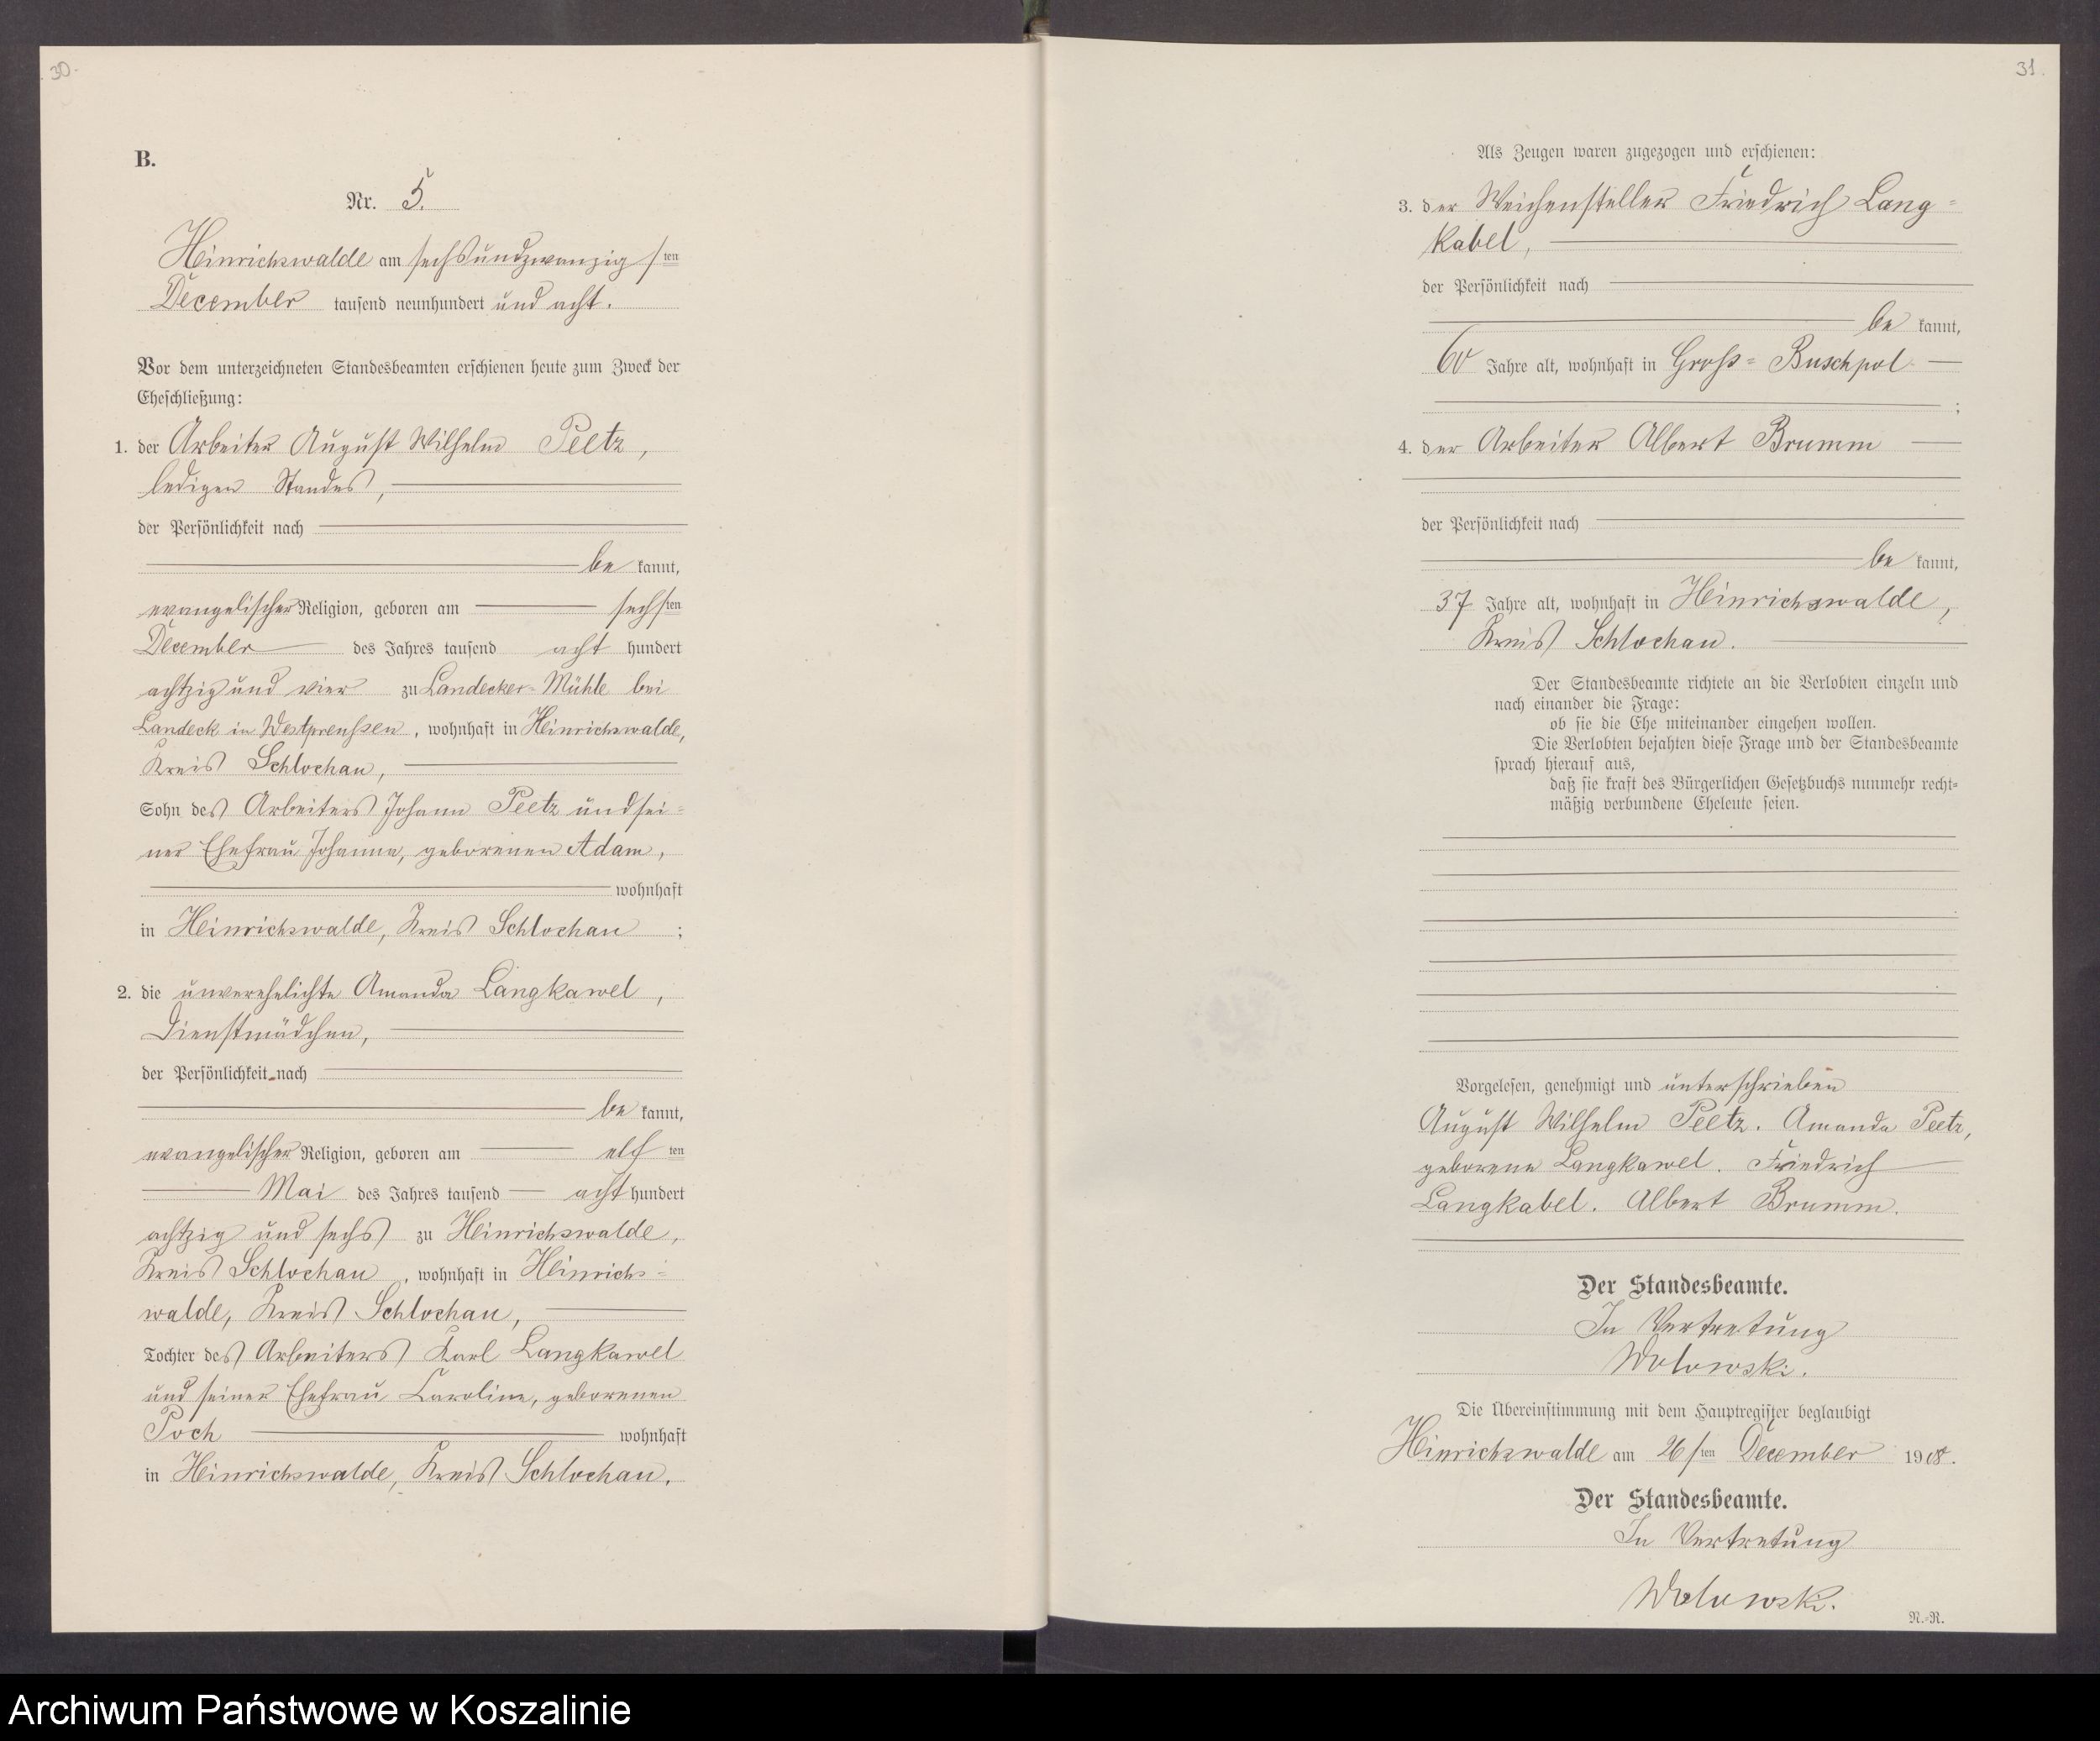 30.
B.
Nr. 5.
Heinrichswalde am sechsundzwanzigsten
December tausend neunhundert und acht.
Vor dem unterzeichneten Standesbeamten erschienen heute zum Zweck der
Eheschließung:
1. der Arbeiter August Wilhelm Peetz,
ledigen Standes,
der Persönlichkeit nach
be kannt,
evangelischer Religion, geboren am sechsten
December des Jahres tausend acht hundert
achtzig und vier zu Landecker-Mühle bei
Landeck in Westpreußen, wohnhaft in Heinrichswalde,
Kreis Schlochau,
Sohn des Arbeiters Johann Peetz und sei=
ner Ehefrau Johanna, geborenen Adam,
wohnhaft
in Heinrichswalde, Kreis Schlochau;
2. die unverehelichte Amanda Langkawel,
Dienstmädchen,
der Persönlichkeit nach
be kannt,
evangelischer Religion, geboren am elften
Mai des Jahres tausend acht hundert
achtzig und sechs zu Heinrichswalde,
Kreis Schlochau, wohnhaft in Heinrichs=
walde, Kreis Schlochau,
Tochter des Arbeiters Karl Langkawel
und seiner Ehefrau Caroline, geborenen
Poch wohnhaft
in Heinrichswalde, Kreis Schlochau.
31.
Als Zeugen waren zugezogen und erschienen:
3. der Weichensteller Friedrich Lang=
kabel,
der Persönlichkeit nach
be kannt,
60 Jahre alt, wohnhaft in Groß=Buschpol
;
4. der Arbeiter Albert Brumm
der Persönlichkeit nach
be kannt,
37 Jahre alt, wohnhaft in Heinrichswalde,
Kreis Schlochau.
Der Standesbeamte richtete an die Verlobten einzeln und
nach einander die Frage:
ob sie die Ehe miteinander eingehen wollen.
Die Verlobten bejahten diese Frage und der Standesbeamte
sprach hierauf aus,
daß sie kraft des Bürgerlichen Gesetzbuchs nunmehr recht=
mäßig verbundene Eheleute seien.
Vorgelesen, genehmigt und unterschrieben
August Wilhelm Peetz. Amanda Peetz,
geborene Langkawel. Friedrich
Langkabel. Albert Brumm.
Der Standesbeamte.
In Vertretung
Wolowski.
Die Übereinstimmung mit dem Hauptregister beglaubigt
Heinrichswalde am 26sten December 1908.
Der Standesbeamte.
In Vertretung
Wolowski.
N.=R.
Archiwum Państwowe w Koszalinie